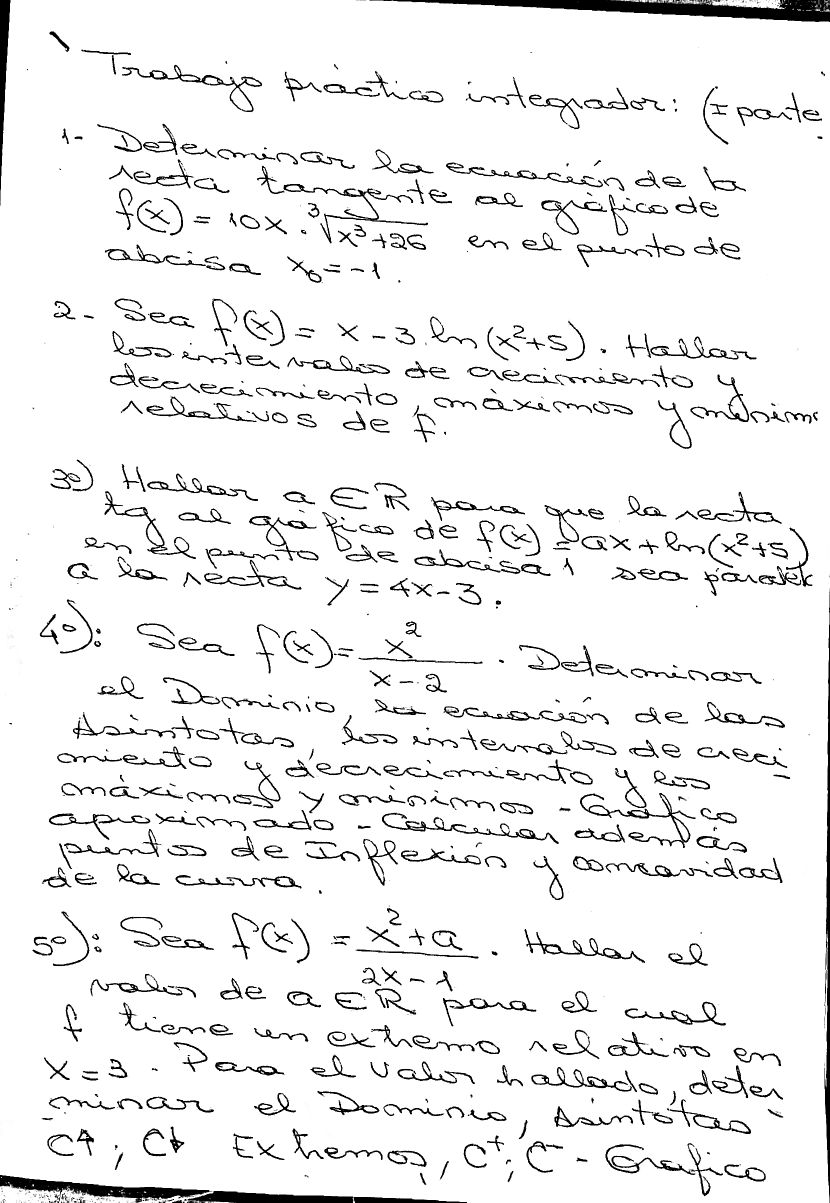 Trabajo práctico integrador: (I parte
1- Determinar la ecuación de la
recta tangente al gráfico de
f(x) = 10x · ∛(x³+26) en el punto de
abcisa x₀=-1.
2- Sea f(x) = x - 3 · ln(x²+5). Hallar
los intervalos de crecimiento y
decrecimiento, máximos y mínim
relativos de f.
3º) Hallar a ∈ ℝ para que la recta
tg al gráfico de f(x) = ax + ln(x²+5)
en el punto de abcisa 1 sea paralel
a la recta y = 4x - 3.
4º): Sea f(x) = x²/(x-2). Determinar
el Dominio, la ecuación de las
Asíntotas, los intervalos de creci-
miento y decrecimiento y los
máximos y mínimos - Gráfico
aproximado - Calcular además
puntos de Inflexión y concavidad
de la curva.
5º): Sea f(x) = (x²+a)/(2x-1). Hallar el
valor de a ∈ ℝ para el cual
f tiene un extremo relativo en
x = 3. Para el valor hallado, deter-
minar el Dominio, Asíntotas
C↑; C↓ Extremos, C⁺; C⁻ - Grafico